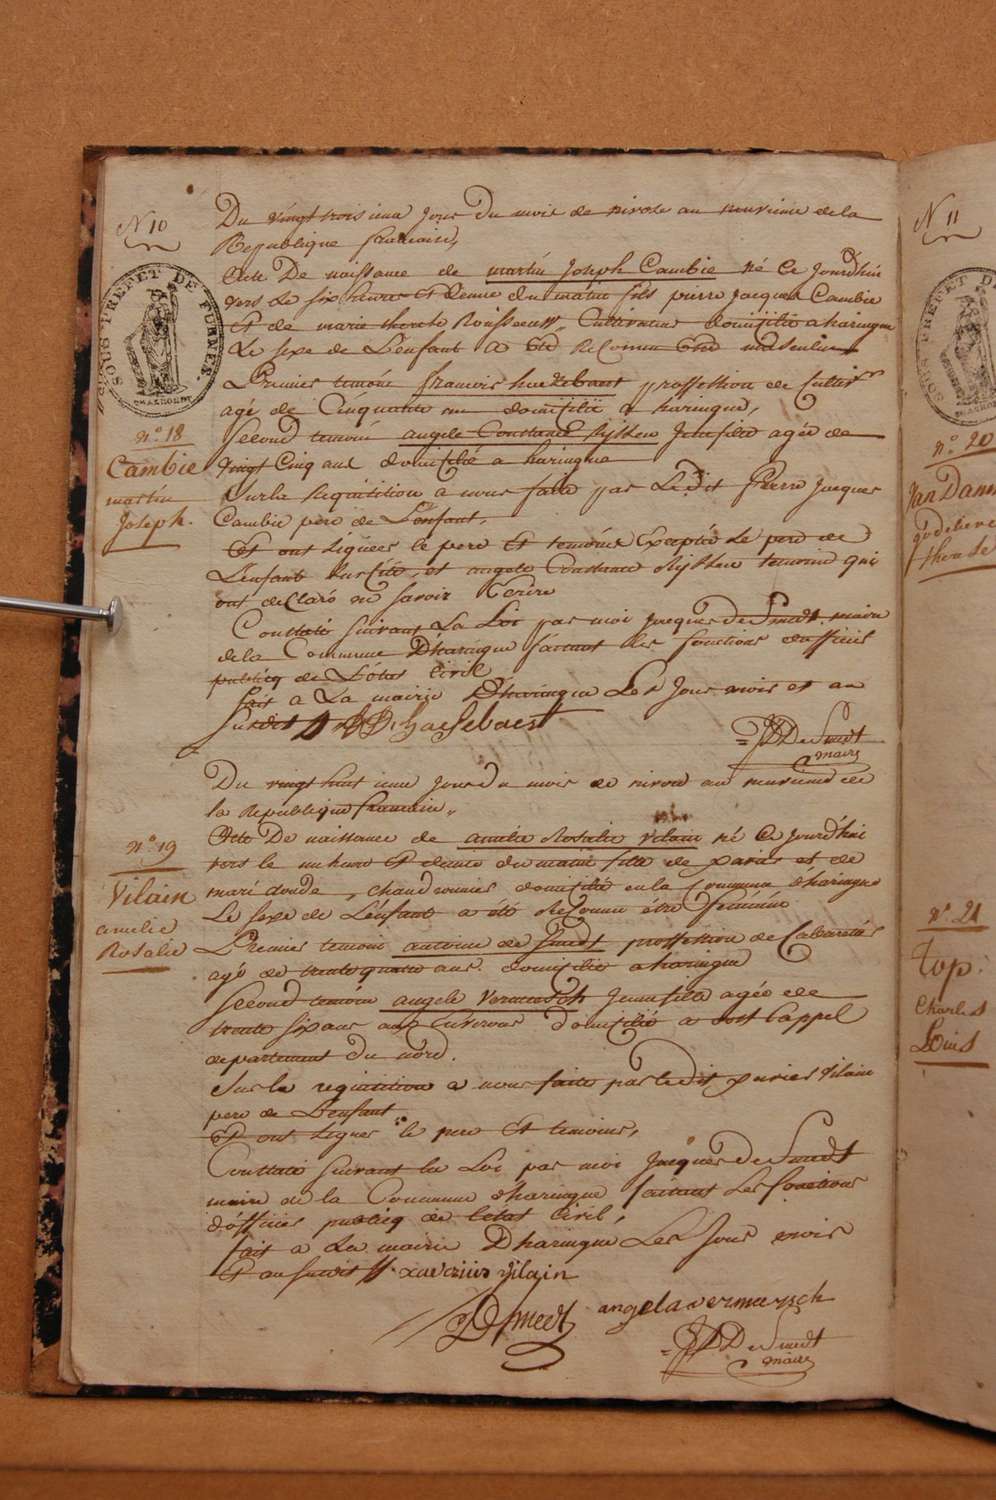 N 10
SOUS PREFET DE FURNES.
Du vingt trois ieme Jour Du mois de nivose an neuvieme de la
Republique francaise,
Acte De naissance de martin Joseph Cambie né Ce Jourd'hui
vers le six heures Et demie du matin fils pierre Jacques Cambie
Et de marie therese Rousseeuw, Cultivateur domicilié a haringue
Le sexe de L'enfant a été Reconnu être masculin
Premier temoin francois haezebaert proffession de Cultivr
agé de Cinquante un domicilié a haringue,
Second temoin angele Constance Rijckew Jeunfille agée de
vingt Cinq ans domicilié a haringue
Sur la Requisition a nous faite par Le dit Pierre Jacques
Cambie pere de L'enfant,
Et ont Signées le pere Et temoins Excepté Le pere de
L'enfant susdite, et angele Constance temoine qui
ont declaré ne Savoir Ecrire
Constaté Suivant La Loi par moi Jacques De Smedt maire
de la Commune D'haringue faisant les fonctions d'officier
publicq de L'état Civil
fait a La mairie D'haringue Les Jour mois et an
Susdit haesebaert
JD De Smedt
maire
n.o 18
Cambie
martin
Joseph.
Du vingt huit ieme Jour du mois de nivose an neuvieme de
la Republique francaise,
Acte De naissance de amelie Rosalie Vilain né Ce Jourd'hui
vers le une heure Et demie du matin fille de xavier et de
marie doude, chaudronnier domicilié en la Commune d'haringue
Le sexe de L'enfant a été Reconnu être feminine
Premier temoin antoine de Smedt proffession de Cabaretier
agé de trente quatre ans domicilie a haringue
Second temoin angele Vermersch Jeunfille agée de
trente six ans domicilié a oost Cappel
departement Du nord.
Sur la requisition a nous faite par le dit xavier Vilain
pere de L'enfant
Et ont Signes le pere Et temoins,
Constaté Suivant la Loi par moi Jacques De Smedt
maire de la Commune d'haringue faisant Les fonctions
d'officier publicq de L'etat Civil,
fait a La mairie D'haringue Les Jour mois
Et an Susdit xaverius vilain
D Smedt angela vermersch
JD De Smedt
maire
n.o 19
Vilain
amelie
Rosalie
N 11
n.o 20
Jan Dam
godelieve
n.o 21
Top.
Charles
Louis